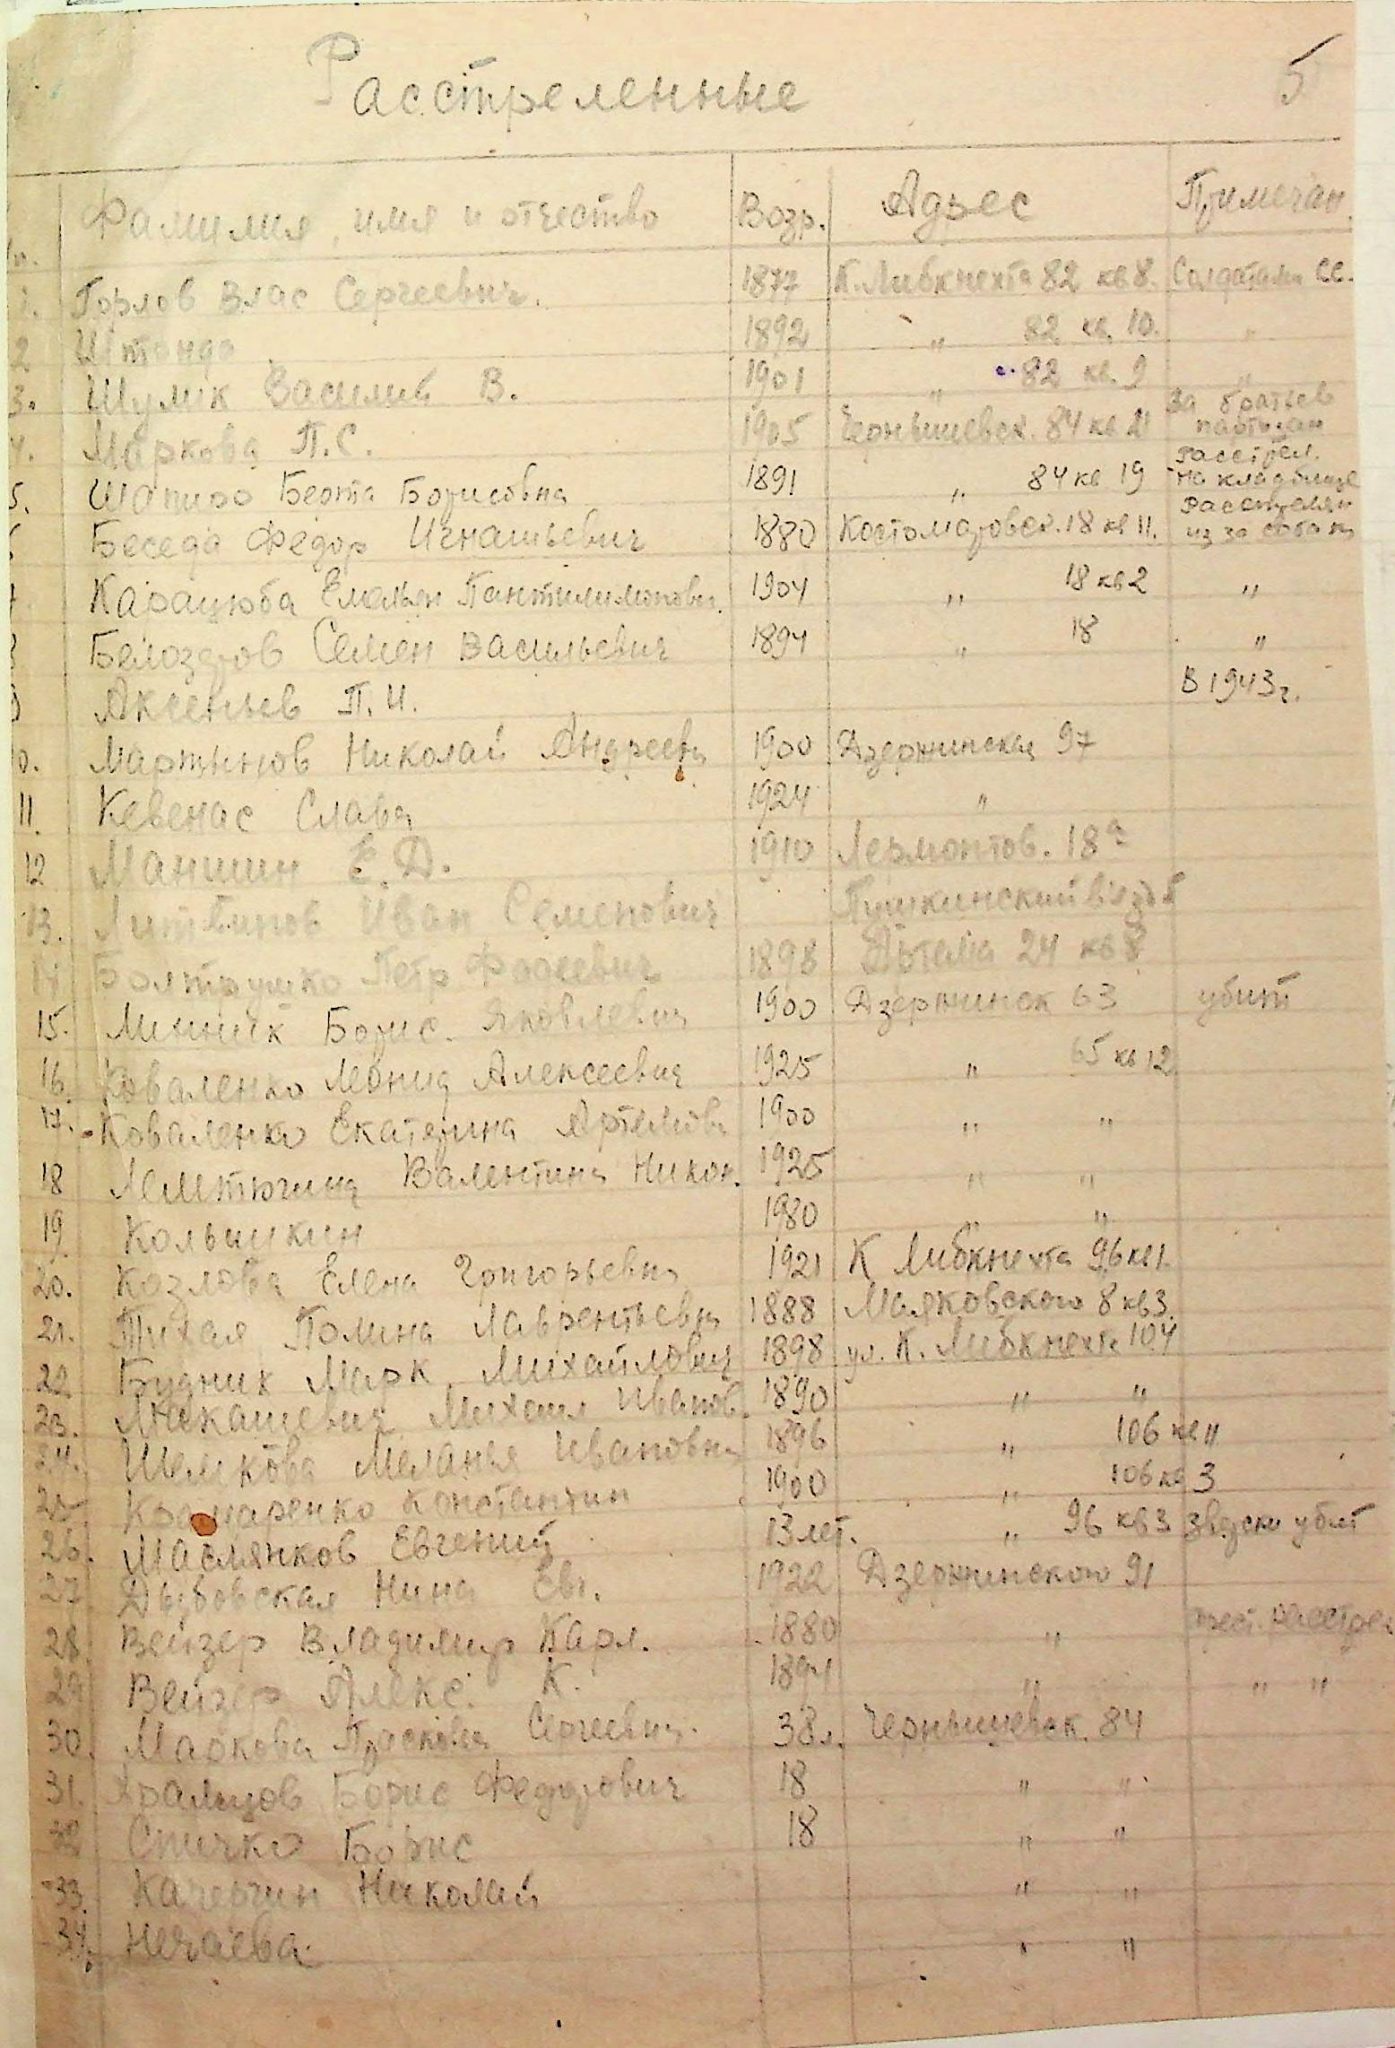 Расстреленные 5
Фамилия, имя и отчество Возр. Адрес Примечан.
1. Горлов Влас Сергеевич. 1877 К. Либкнехта 82 кв 8. Солдатами СС.
2 Штанда 1892 " 82 кв. 10. "
3. Шумик Василий В. 1901 " 82 кв. 9 "
4. Маркова П.С. 1905 Чернышевск. 84 кв 21 За братьев партизан
5. Шапиро Берта Борисовна 1891 " 84 кв 19 Расстрел. на кладбище
Беседа Федор Игнатьевич 1880 Костомаровск. 18 кв 11. Расстрелян из за собаки
Карацюба Емельян 1904 " 18 кв 2 "
Белозеров Семен Васильевич 1894 " 18 "
Аксентьев П.И. В 1943 г.
10. Мартынов Николай 1900 Дзержинская 97
11. Кевенас Слава 1924 "
12 Маншин Е.Д. 1910 Лермонтов. 18а
13. Иван Семенович Пушкинский
14 Петр Фадеевич 1898 Артема 24 кв 8
15. Линник Борис Яковлевич 1900 Дзержинск 63 убит
16. Коваленко Леонид Алексеевич 1925 " 65 кв 12
17. Коваленко Екатерина Артемов. 1900 " "
18 Валентина Никол. 1925 " "
19. Колышкин 1980 " "
20. Козлова Елена Григорьевна 1921 К Либкнехта 96 кв 1.
21. Тихая Полина Лаврентьевна 1888 Маяковского 8 кв 3.
22 Будник Марк Михайлович 1898 ул. К. Либкнехта 104
23. Лукашевич Михаил Иванов. 1890 " "
24. Шелкова Меланья Ивановна 1896 " 106 кв 11
25 Константин 1900 " 106 кв 3
26. Маслянков Евгений 13 лет. " 96 кв 3 Зверски убит
27 Нина Евг. 1922 Дзержинского 91
28. Вейзер Владимир Карл. 1880 "
29 Вейзер Алекс. К. 1894 " " "
30. Маркова Прасковья Сергеевна. 38 л. Чернышевск. 84
31. Храмцов Борис Федорович 18 " "
32 Спичко Борис 18 " "
33. Николай " "
34. Нечаева " "